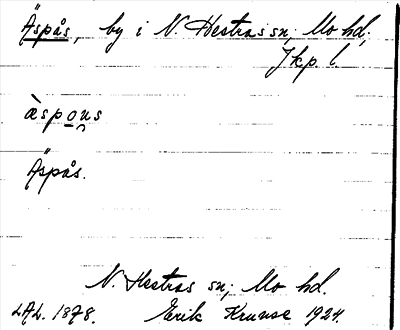 Äspås, by i N. Hestras sn; Mo hd;
Jkp. l.
àspo̲n̯s
Äspås.
N. Hestras sn; Mo hd.
LAL. 1878. Erik Kruuse 1924